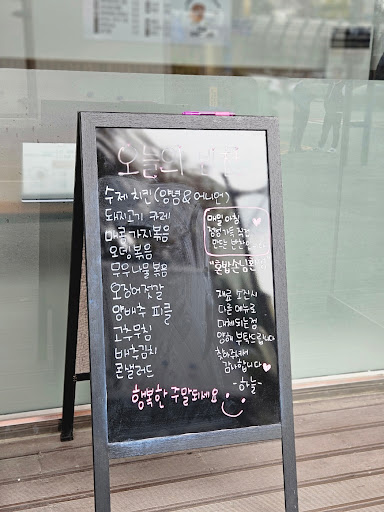 오늘의 반찬
수제 치킨 (양념 & 어니언)
돼지고기 카레
매콤 가지볶음
오뎅볶음
무우나물볶음
오징어젓갈
양배추 피클
고추무침
배추김치
콘샐러드
매일 아침
정성 가득 직접
만드는 반찬
"혼밥손님환
재료 소진시
다른 메뉴로
대체되는점
양해 부탁드립니다
찾아주셔서
감사합니다
-하늘-
행복한 주말되세요